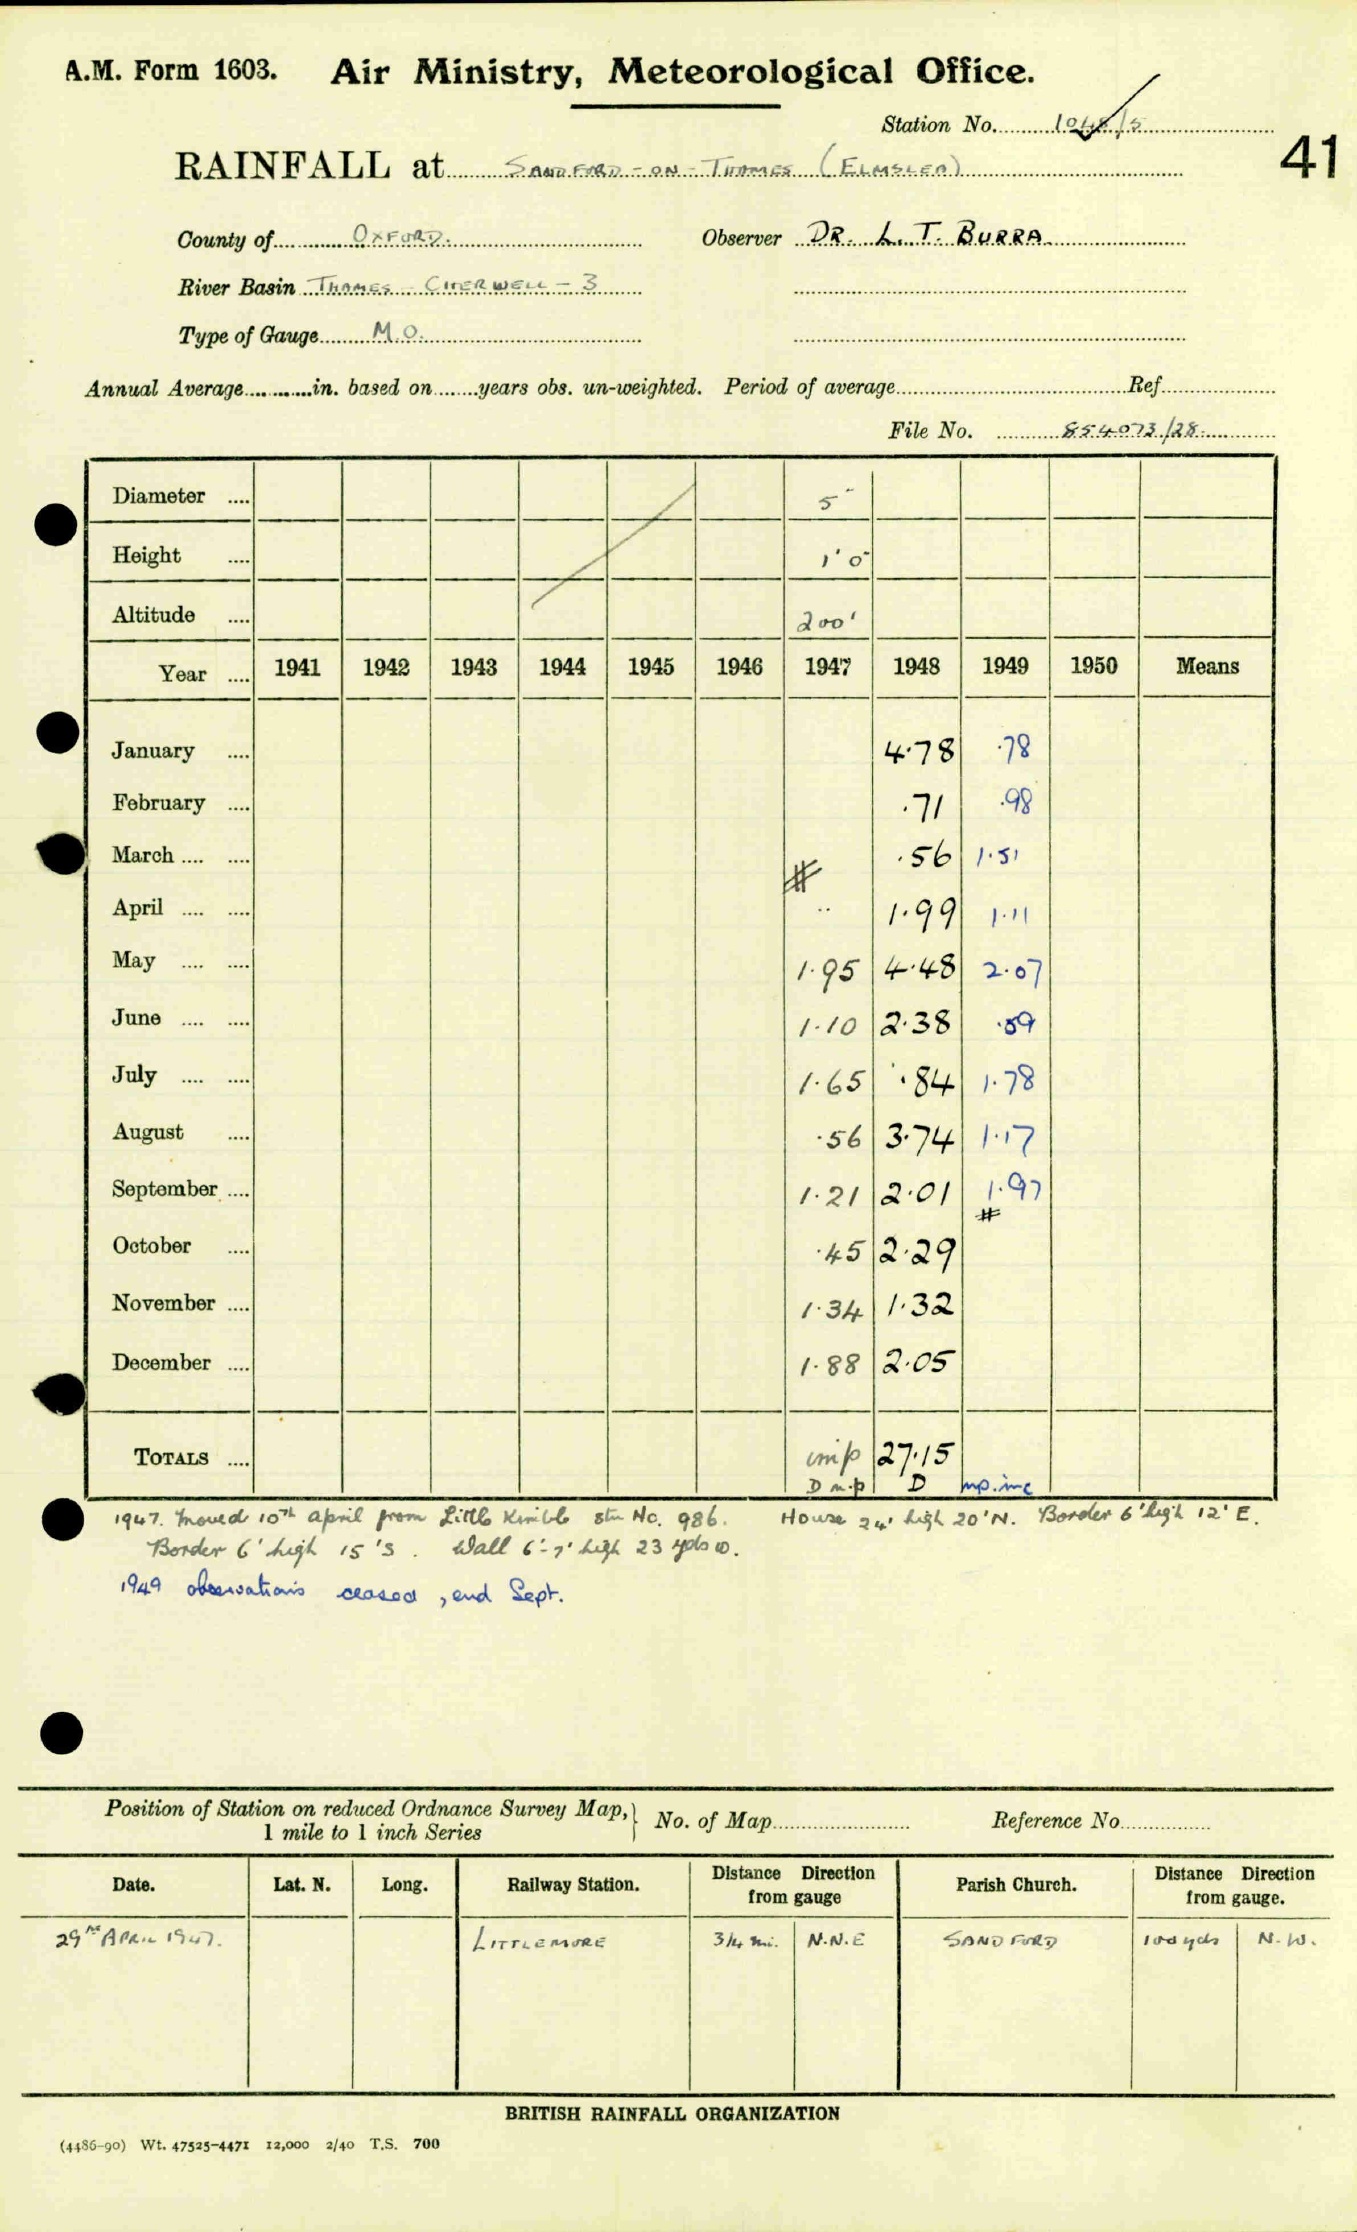 A.M. Form 1603. Air Ministry, Meteorological Office.
Station No. 1048/5
41
RAINFALL at SANDFORD-ON-THAMES (ELMSLEA)
County of OXFORD. Observer DR. L. T. BURRA
River Basin THAMES - CHERWELL - 3
Type of Gauge M.O.
Annual Average in. based on years obs. un-weighted. Period of average Ref.
File No. 854073/28.
Diameter .... 5"
Height .... 1' 0"
Altitude .... 200'
Year .... 1941 1942 1943 1944 1945 1946 1947 1948 1949 1950 Means
January .... 4.78 .78
February .... .71 .98
March .... .... .56 1.51
April .... .... .. 1.99 1.11
May .... .... 1.95 4.48 2.07
June .... .... 1.10 2.38 .59
July .... .... 1.65 .84 1.78
August .... .56 3.74 1.17
September .... 1.21 2.01 1.97
October .... .45 2.29
November .... 1.34 1.32
December .... 1.88 2.05
TOTALS .... imp 27.15
D n.p D np. inc
1947. Moved 10th April from Little Kimble Stn No. 986. House 24' high 20' N. Border 6' high 12' E.
Border 6' high 15' S. Wall 6'-7' high 23 yds W.
1949 observations ceased, end Sept.
Position of Station on reduced Ordnance Survey Map, 1 mile to 1 inch Series } No. of Map Reference No.
Date. Lat. N. Long. Railway Station. Distance Direction from gauge Parish Church. Distance Direction from gauge.
29th APRIL 1947. LITTLEMORE 3/4 mi. N.N.E SANDFORD 100 yds N.W.
BRITISH RAINFALL ORGANIZATION
(4486-90) Wt. 47525-4471 12,000 2/40 T.S. 700